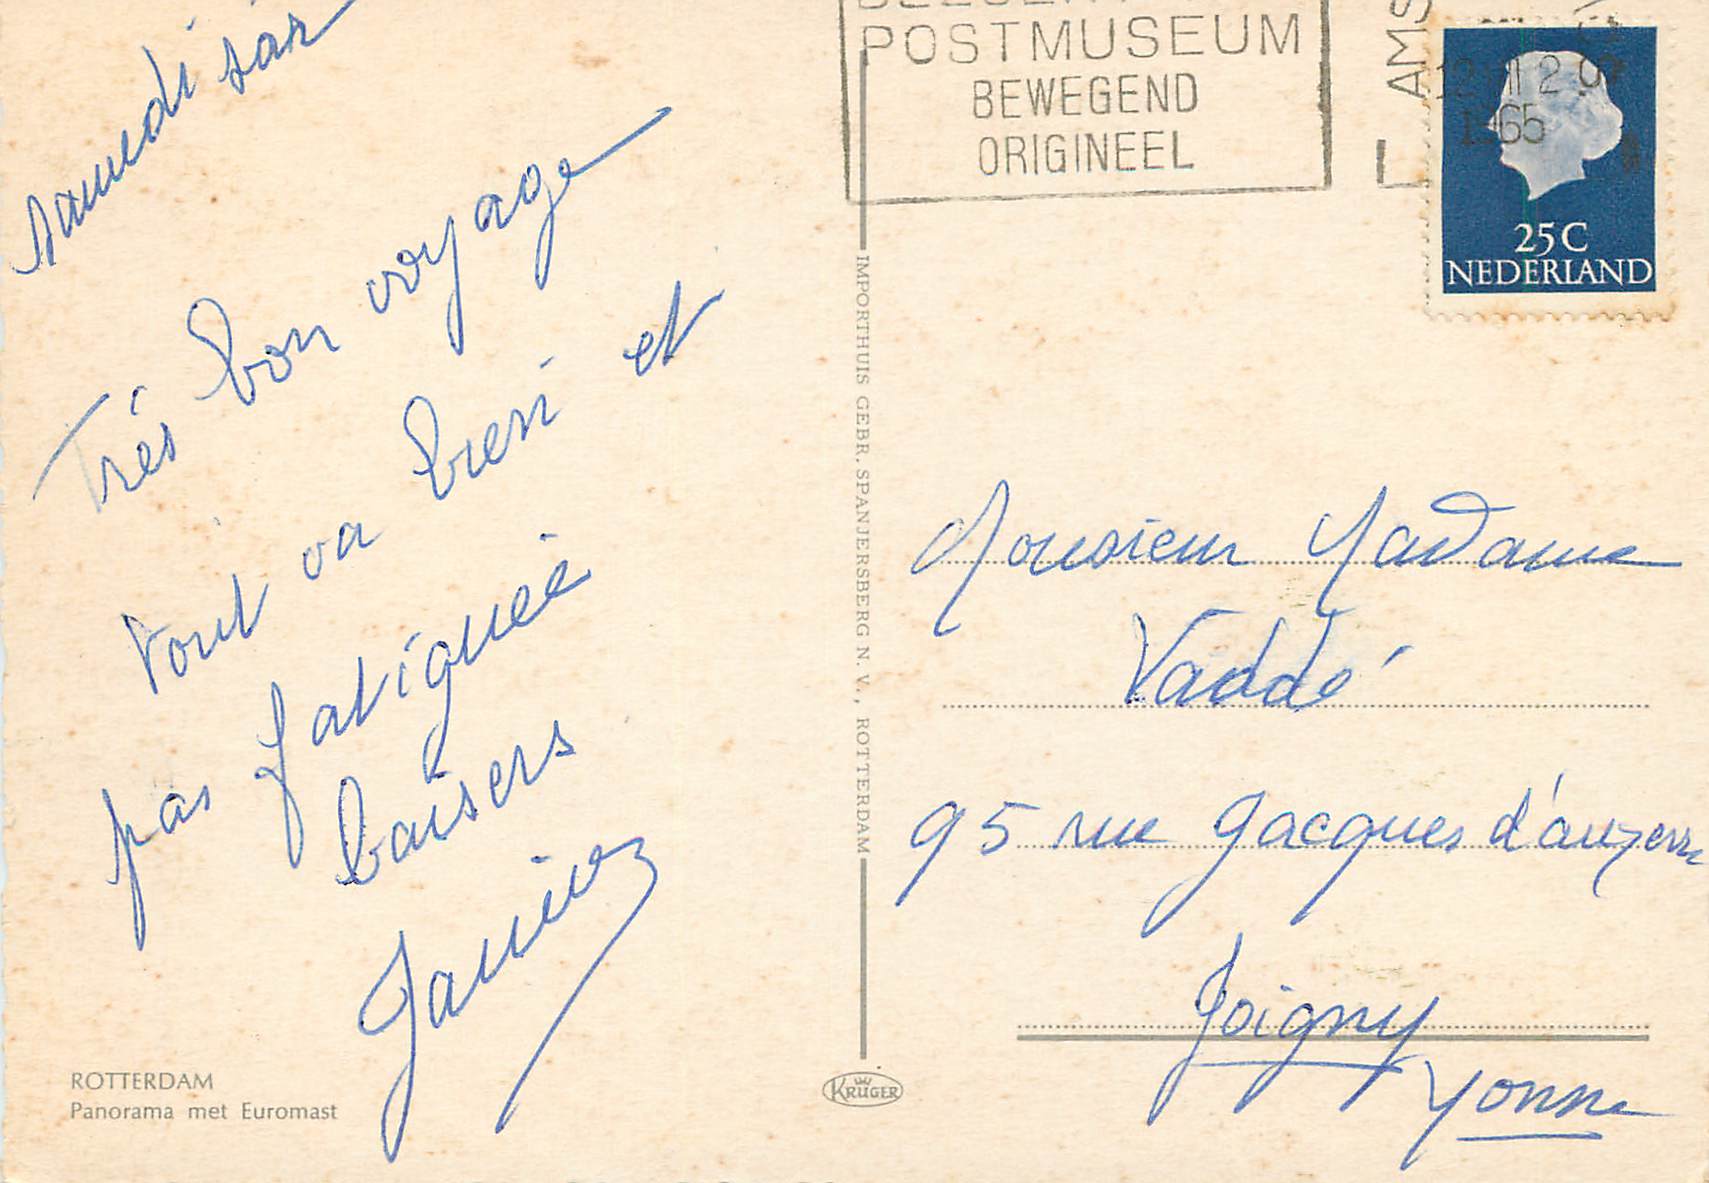 samedi soir
Très bon voyage
tout va bien et
pas fatiguée
baisers
ROTTERDAM
Panorama met Euromast
POSTMUSEUM
BEWEGEND
ORIGINEEL
AMS
1965
25C
NEDERLAND
IMPORTHUIS GEBR. SPANJERSBERG N.V., ROTTERDAM
KRÜGER
Monsieur Madame
Vaddé
95 rue Jacques d'auxerre
Joigny
Yonne